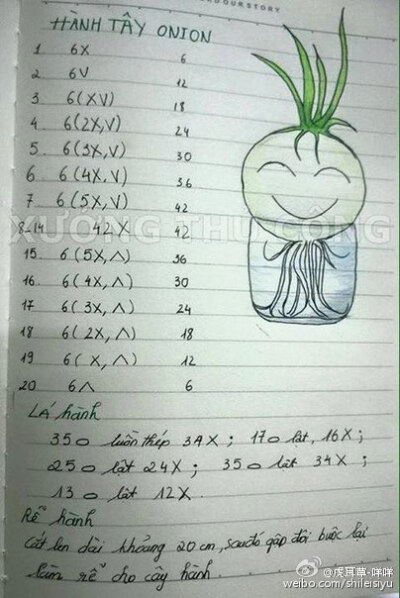 OUR STORY
HÀNH TÂY ONION
1 6X 6
2 6V 12
3 6(XV) 18
4 6(2X,V) 24
5. 6(3X,V) 30
6 6(4X,V) 36
7 6(5X,V) 42
8-14 42X 42
XƯỞNG THỦ CÔNG
15. 6(5X,Λ) 36
16. 6(4X,Λ) 30
17 6(3X,Λ) 24
18 6(2X,Λ) 18
19 6(X,Λ) 12
20 6Λ 6
LÁ hành
35 luồn thép 34X; 17 lật, 16X;
25 lật 24X; 35 lật 34X;
13 lật 12X.
Rễ hành
Cắt len dài khoảng 20 cm, sau đó gập đôi buộc lại
làm rễ cho cây hành.
@虎耳草-咩咩
weibo.com/shileisiyu